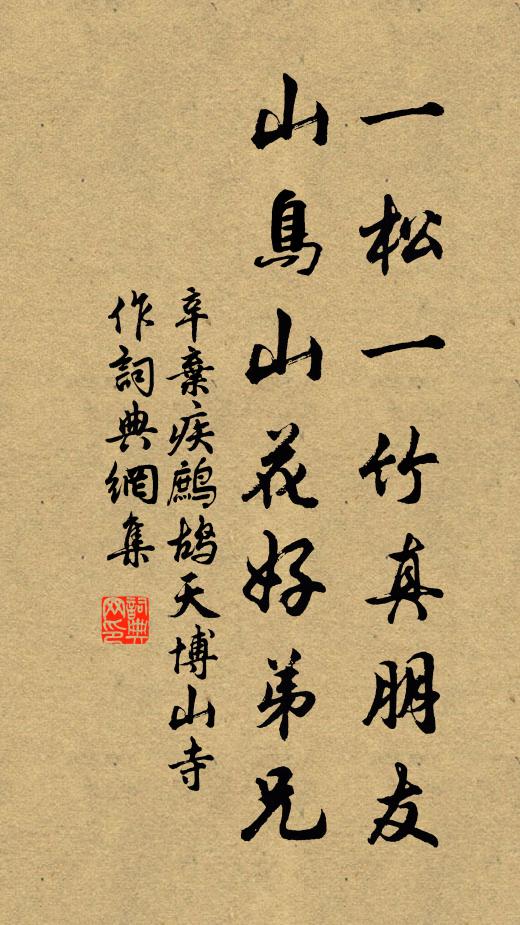 一松一竹真朋友
山鳥山花好弟兄
辛棄疾鷓鴣天博山寺
作詞典網集
詞典
网印